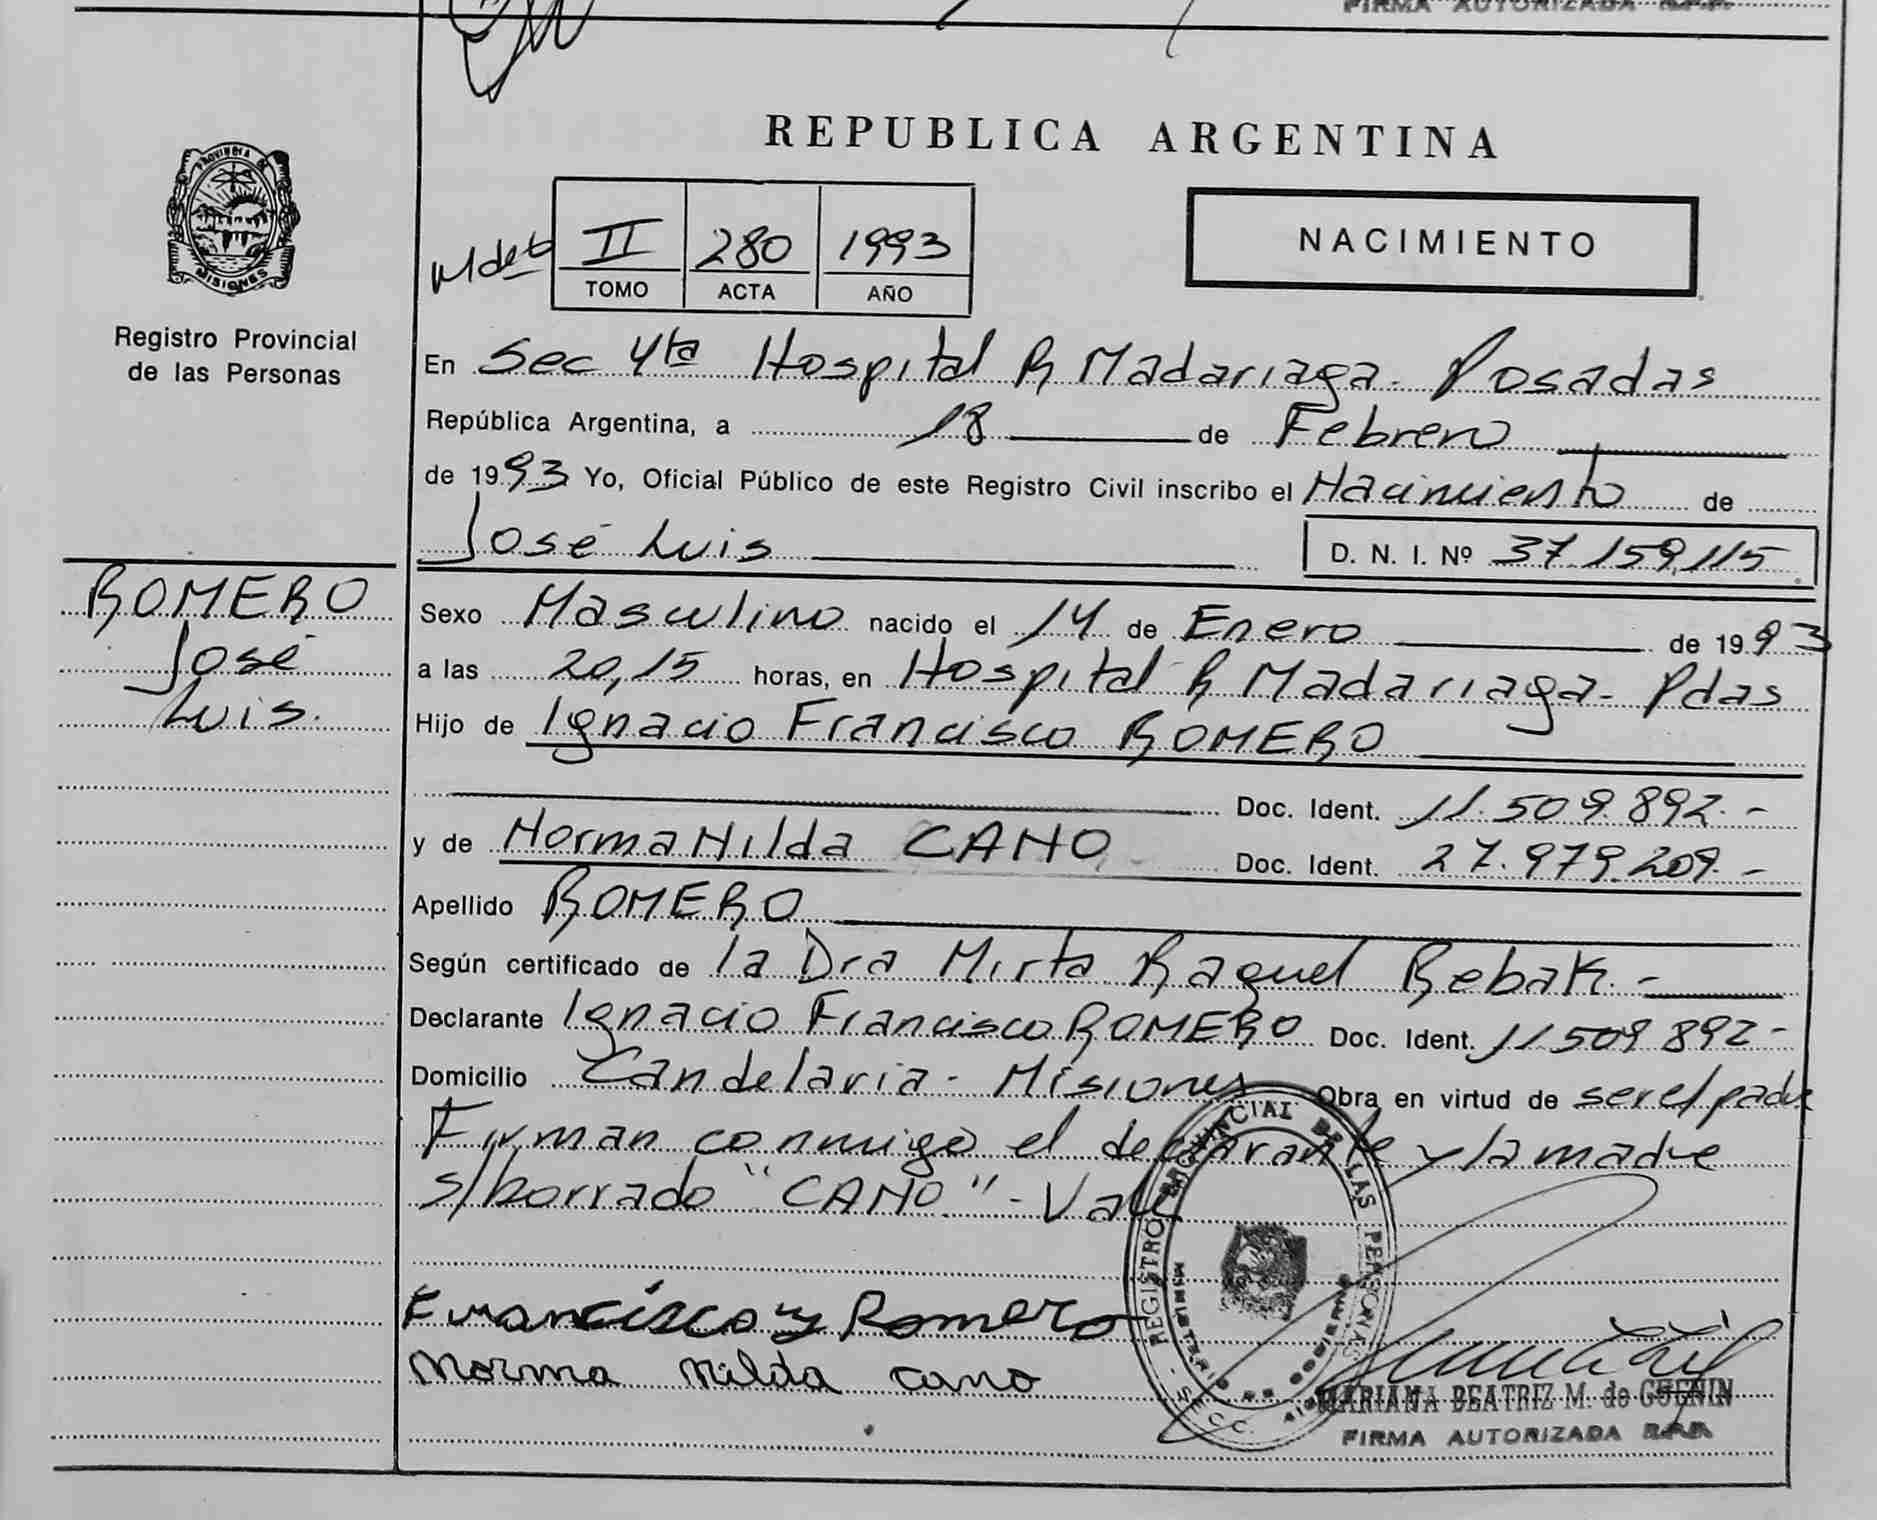 FIRMA AUTORIZADA R.P.P.
REPUBLICA ARGENTINA
PROVINCIA DE
MISIONES
Registro Provincial
de las Personas
II 280 1993
TOMO ACTA AÑO
NACIMIENTO
En Sec 4ta Hospital R Madariaga - Posadas
República Argentina, a 18 de Febrero
de 1993 Yo, Oficial Público de este Registro Civil inscribo el Nacimiento de
José Luis D. N. I. Nº 37.159.115
ROMERO
José
Luis.
Sexo Masculino nacido el 14 de Enero de 1993
a las 20,15 horas, en Hospital R Madariaga - Pdas
Hijo de Ignacio Francisco ROMERO
Doc. Ident. 11.509.892.-
y de Norma Nilda CANO Doc. Ident. 27.979.209.-
Apellido ROMERO
Según certificado de la Dra Mirta Raquel Rebak.-
Declarante Ignacio Francisco ROMERO Doc. Ident. 11509892-
Domicilio Candelaria - Misiones Obra en virtud de ser el padre
Firman conmigo el declarante y la madre
s/borrado "CANO" - Vale
Francisco y Romero
Norma Nilda Cano
REGISTRO PROVINCIAL DE LAS PERSONAS
MINISTERIO DE GOBIERNO
SECC.
MARIANA BEATRIZ M. de GUENIN
FIRMA AUTORIZADA R.P.P.